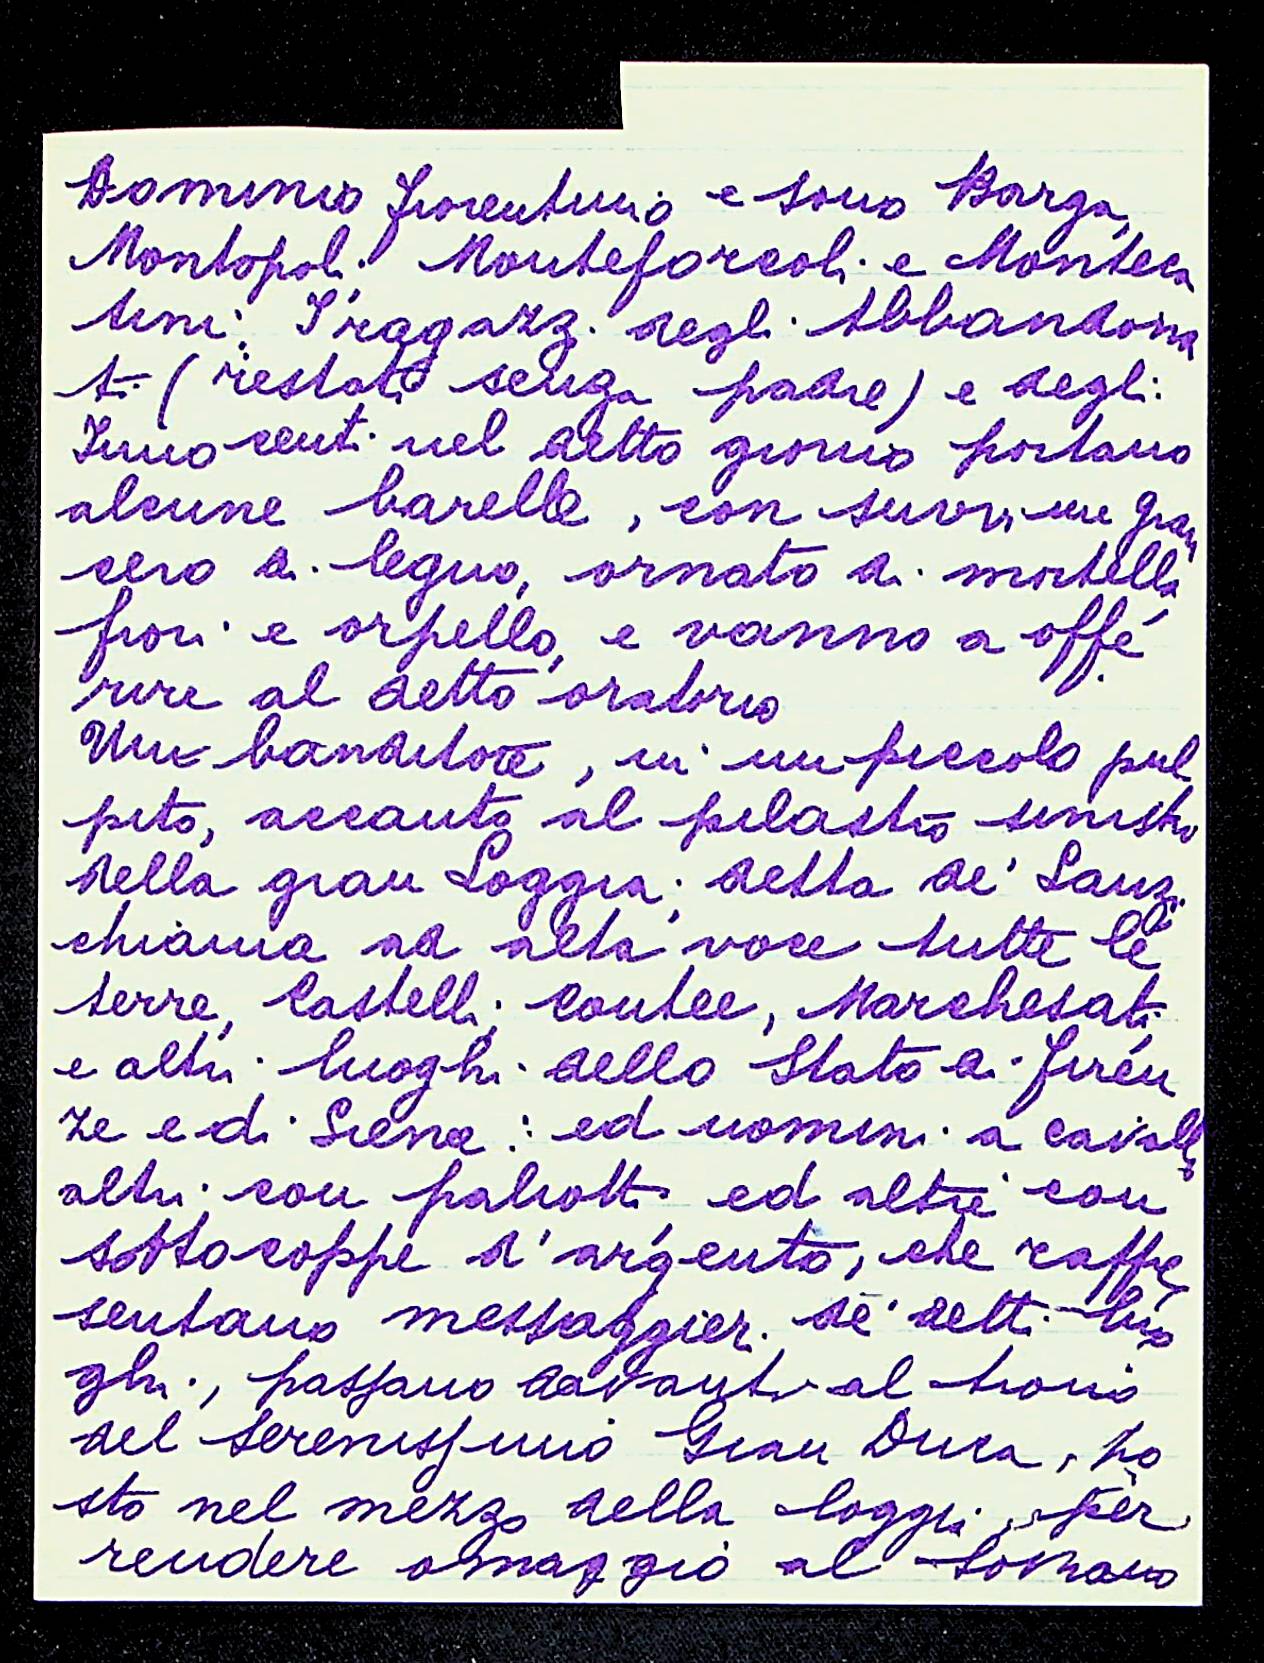 Dominio fiorentino e sono Barga,
Montopoli, Monteforcoli e Monteca
tini. I ragazzi degli Abbandona
ti (restati senza padre) e degli
Innocenti nel detto giorno portano
alcune barelle, con suvvi un gran
cero di legno, ornato di mortella
fiori e orpello, e vanno a offe
rire al detto oratorio
Un banditore, in un piccolo pul
pito, accanto al pilastro sinistro
della gran Loggia, detta de' Lanzi
chiama ad alta voce tutte le
terre, Castelli, Contee, Marchesati
e altri luoghi dello Stato di Firen
ze e di Siena: ed uomini a cavallo,
altri con paliotti ed altri con
sottocoppe d'argento, che rappre
sentano messaggieri de' detti luo
ghi, passano davanti al trono
del Serenissimo Gran Duca, po
sto nel mezzo della loggia, per
rendere omaggio al Sovrano